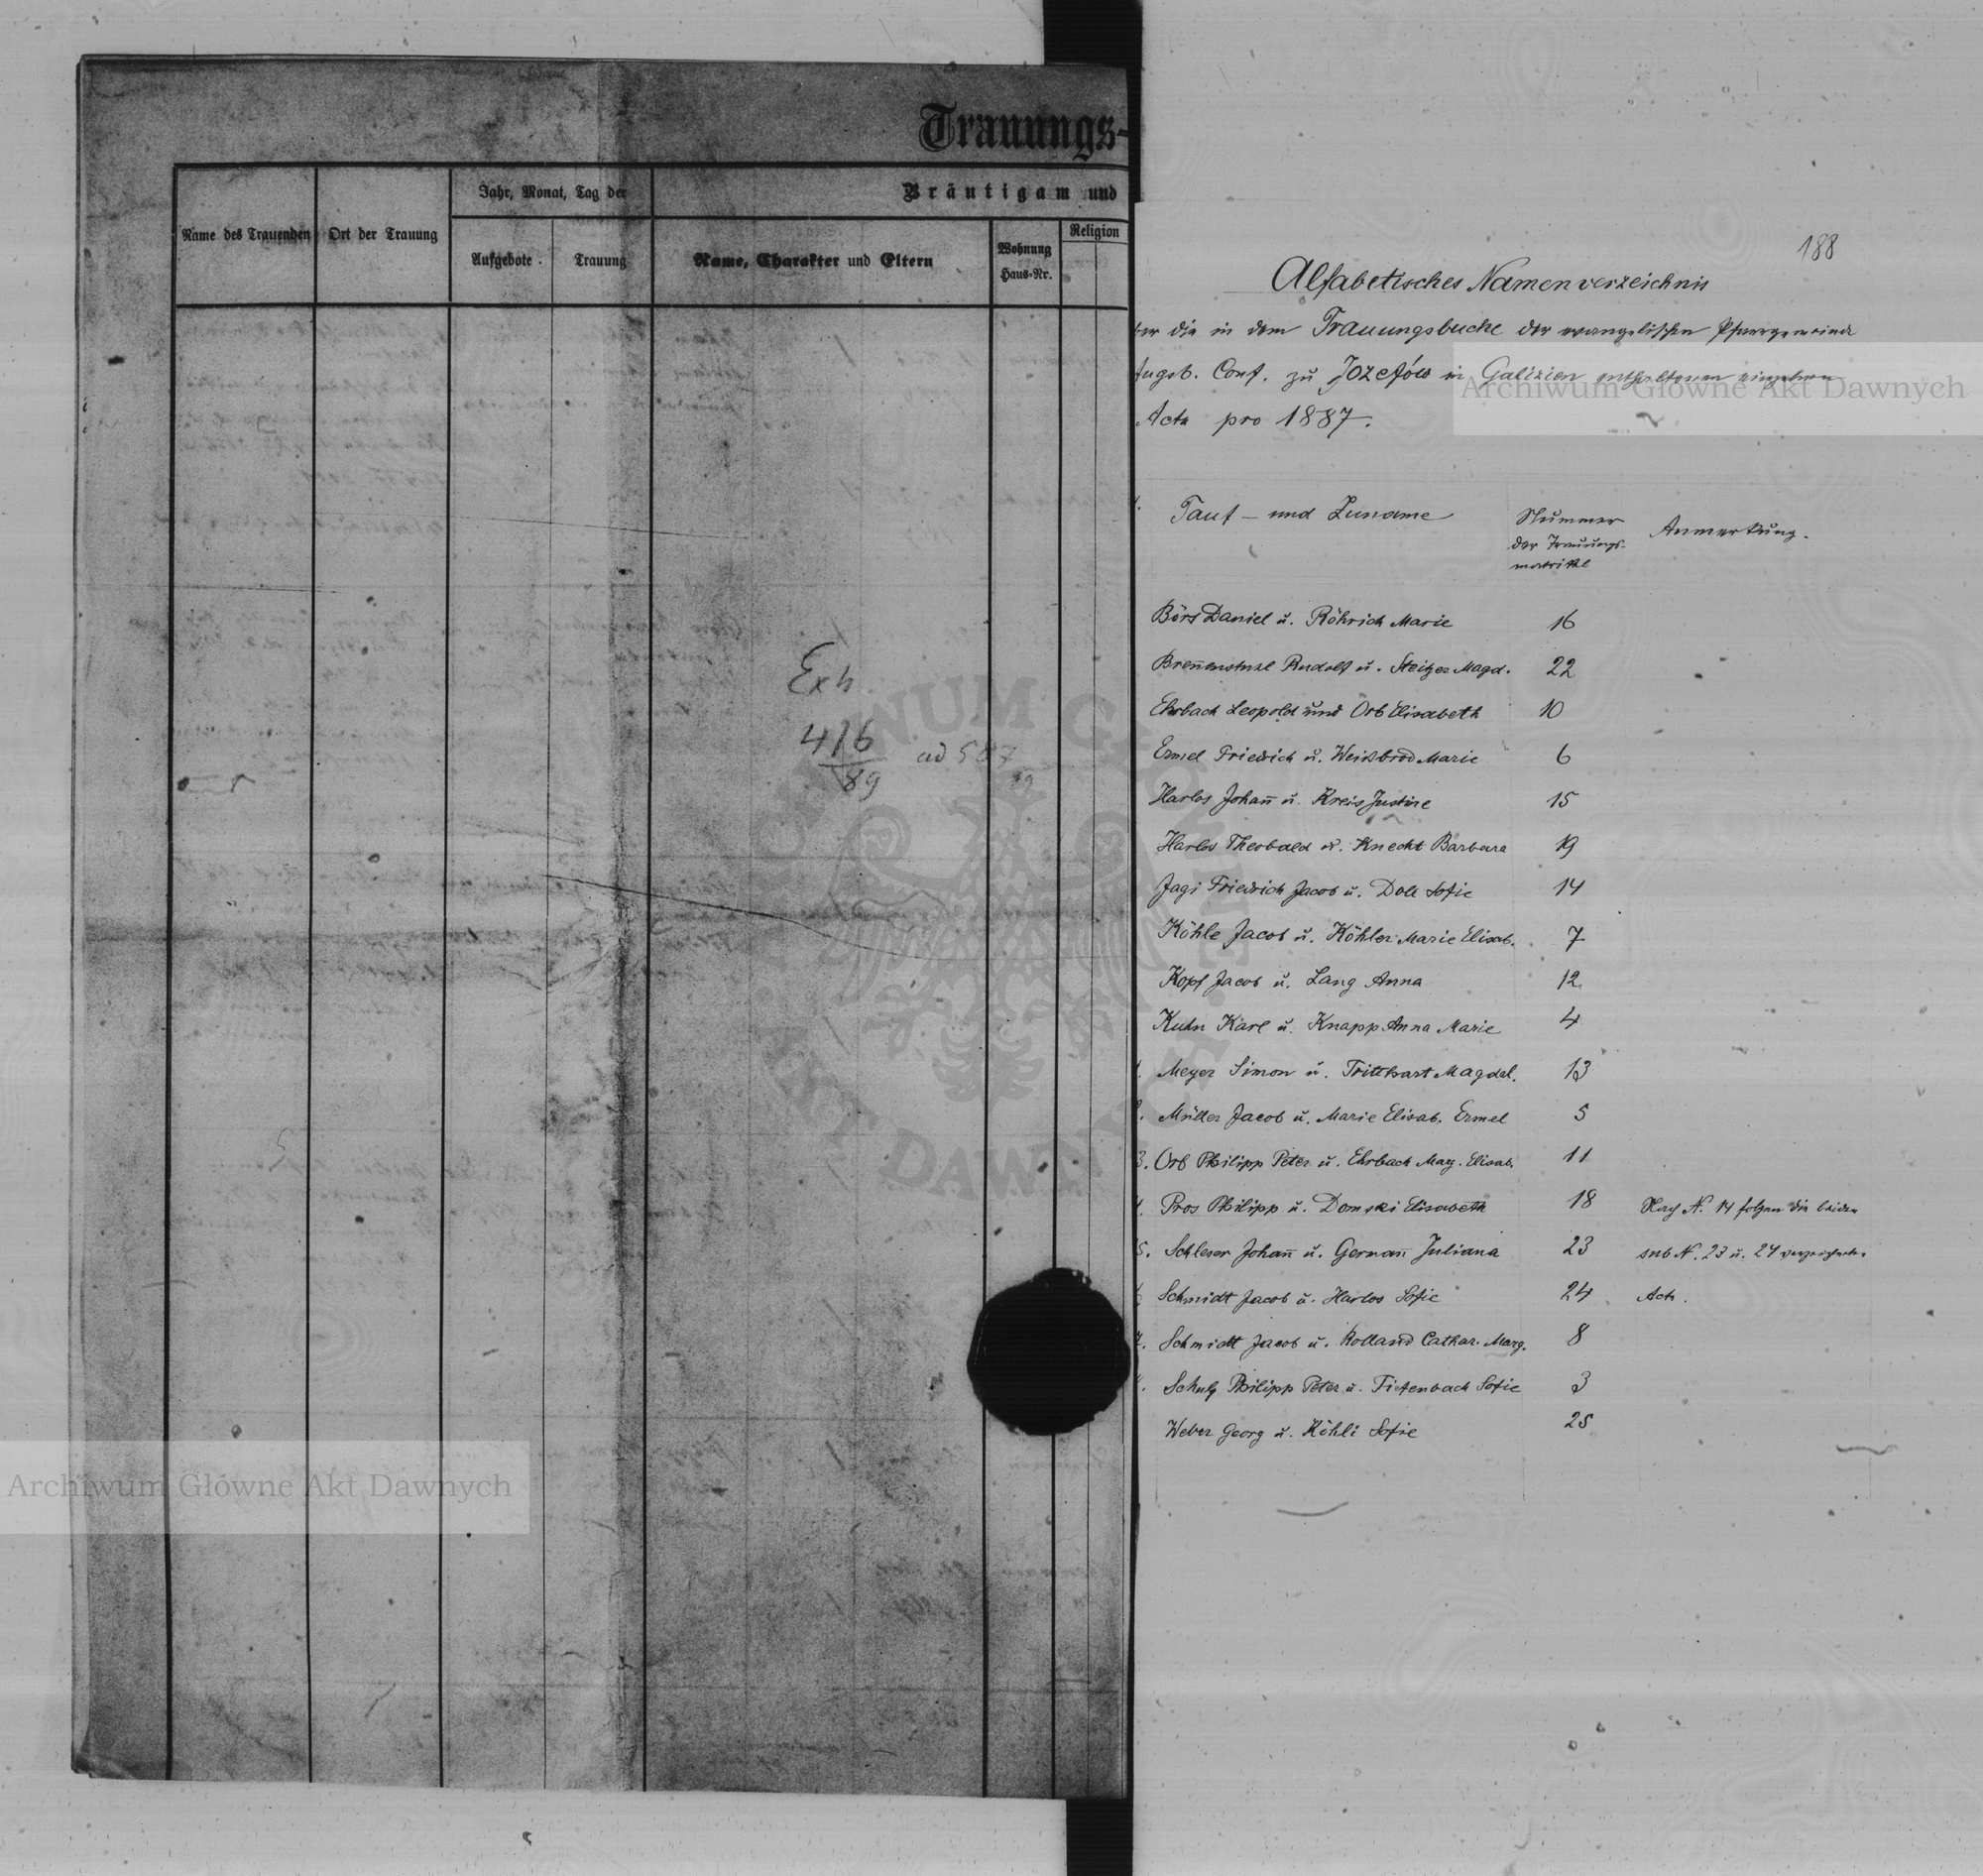 Trauungs-
Name des Trauenden
Ort der Trauung
Jahr, Monat, Tag der
Aufgebote.
Trauung
Bräutigam und
Name, Charakter und Eltern
Wohnung
Haus-Nr.
Religion
Exh
416
89
ad
188
Alfabetisches Namenverzeichnis
ber die in dem Trauungsbuche der evangelischen Pfarrgemeinde
Augsb. Conf. zu Józefów in Galizien enthaltenen einzelnen
Acte pro 1887.
Tauf - und Zuname
Nummer
der Trauungs-
matrikel
Anmerkung.
Börs Daniel u. Röhrich Marie 16
Breñenstuhl Rudolf u. Steitzer Magd. 22
Ehrbach Leopold und Orb Elisabeth 10
Ermel Friedrich u. Weisbrod Marie 6
Harlos Johañ u. Kreis Justine 15
Harlos Theobald u. Knecht Barbara 19
Jagi Friedrich Jacob u. Doll Sofie 14
Köhle Jacob u. Köhler Marie Elisab. 7
Kopf Jacob u. Lang Anna 12
Kuhn Karl u. Knapp Anna Marie 4
Meyer Simon u. Tritthart Magdal. 13
Müller Jacob u. Marie Elisab. Ermel 5
3. Orb Philipp Peter u. Ehrbach Marg. Elisab. 11
Pros Philipp u. Domski Elisabeth 18 Nach N. 14 folgen die beiden
5. Schleser Johañ u. Germañ Juliana 23 sub N. 23 u. 24 verzeichnete
Schmidt Jacob u. Harlos Sofie 24 Acte.
7. Schmidt Jacob u. Rolland Cathar. Marg. 8
Schulz Philipp Peter u. Tiefenbach Sofie 3
Weber Georg u. Köhli Sofie 25
Archiwum Główne Akt Dawnych
Archiwum Główne Akt Dawnych